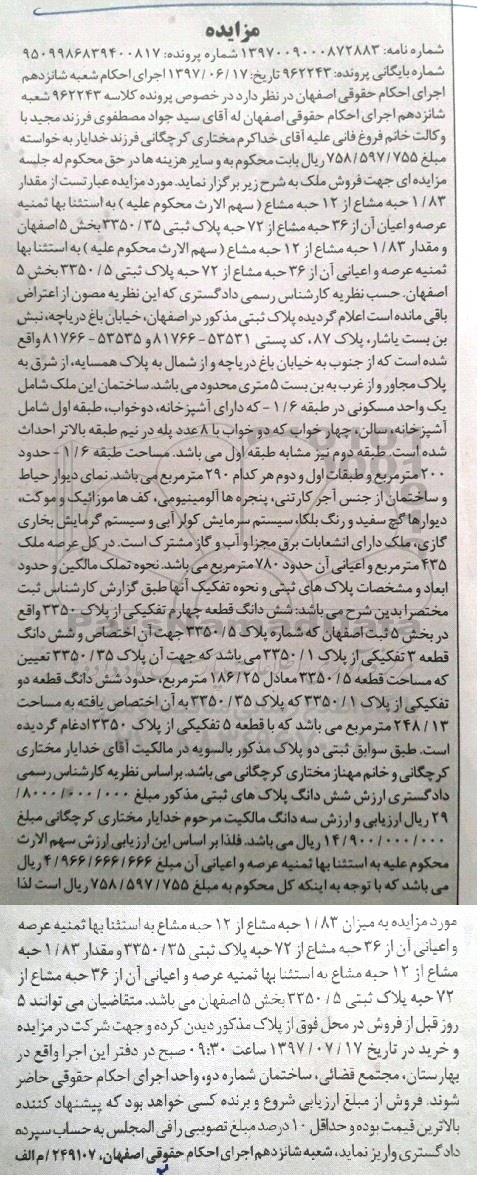 مزایده
شماره نامه: ۱۳۹۷۰۰۹۰۰۰۸۷۲۸۸۳ شماره پرونده: ۹۵۰۹۹۸۶۸۳۹۴۰۰۸۱۷
شماره بایگانی پرونده: ۹۶۲۲۴۳ تاریخ: ۱۳۹۷/۰۶/۱۷ اجرای احکام شعبه شانزدهم
اجرای احکام حقوقی اصفهان در نظر دارد در خصوص پرونده کلاسه ۹۶۲۲۴۳ شعبه
شانزدهم اجرای احکام حقوقی اصفهان له آقای سید جواد مصطفوی فرزند مجید با
وکالت خانم فروغ فانی علیه آقای خداکرم مختاری کرچگانی فرزند خدایار به خواسته
مبلغ ۷۵۸/۵۹۷/۷۵۵ ریال بابت محکوم به و سایر هزینه ها در حق محکوم له جلسه
مزایده ای جهت فروش ملک به شرح زیر برگزار نماید. مورد مزایده عبارتست از مقدار
۱/۸۳ حبه مشاع از ۱۲ حبه مشاع ( سهم الارث محکوم علیه ) به استثنا بها ثمنیه
عرصه و اعیان آن از ۳۶ حبه مشاع از ۷۲ حبه پلاک ثبتی ۳۳۵۰/۳۵ بخش ۵ اصفهان
و مقدار ۱/۸۳ حبه مشاع از ۱۲ حبه مشاع ( سهم الارث محکوم علیه ) به استثنا بها
ثمنیه عرصه و اعیانی آن از ۳۶ حبه مشاع از ۷۲ حبه پلاک ثبتی ۳۳۵۰/۵ بخش ۵
اصفهان. حسب نظریه کارشناس رسمی دادگستری که این نظریه مصون از اعتراض
باقی مانده است اعلام گردیده پلاک ثبتی مذکور در اصفهان، خیابان باغ دریاچه، نبش
بن بست یاشار، پلاک ۸۷، کد پستی ۵۳۵۳۱ - ۸۱۷۶۶ و ۵۳۵۳۵ - ۸۱۷۶۶ واقع
شده است که از جنوب به خیابان باغ دریاچه و از شمال به پلاک همسایه، از شرق به
پلاک مجاور و از غرب به بن بست ۵ متری محدود می باشد. ساختمان این ملک شامل
یک واحد مسکونی در طبقه ۱/۶ - که دارای آشپزخانه، دوخواب، طبقه اول شامل
آشپزخانه، سالن، چهار خواب که دو خواب با ۸ عدد پله در نیم طبقه بالاتر احداث
شده است. طبقه دوم نیز مشابه طبقه اول می باشد. مساحت طبقه ۱/۶ - حدود
۲۰۰ مترمربع و طبقات اول و دوم هر کدام ۲۹۰ مترمربع می باشد. نمای دیوار حیاط
و ساختمان از جنس آجر کارتنی، پنجره ها آلومینیومی، کف ها موزائیک و موکت،
دیوارها گچ سفید و رنگ بلکا، سیستم سرمایش کولر آبی و سیستم گرمایش بخاری
گازی، ملک دارای انشعابات برق مجزا و آب و گاز مشترک است. در کل عرصه ملک
۴۳۵ مترمربع و اعیانی آن حدود ۷۸۰ مترمربع می باشد. نحوه تملک مالکین و حدود
ابعاد و مشخصات پلاک های ثبتی و نحوه تفکیک آنها طبق گزارش کارشناس ثبت
مختصرا بدین شرح می باشد: شش دانگ قطعه چهارم تفکیکی از پلاک ۳۳۵۰ واقع
در بخش ۵ ثبت اصفهان که شماره پلاک ۳۳۵۰/۵ جهت آن اختصاص و شش دانگ
قطعه ۳ تفکیکی از پلاک ۳۳۵۰/۱ می باشد که جهت آن پلاک ۳۳۵۰/۳۵ تعیین
که مساحت قطعه ۳۳۵۰/۵ معادل ۱۸۶/۲۵ مترمربع، حدود شش دانگ قطعه دو
تفکیکی از پلاک ۳۳۵۰/۱ که پلاک ۳۳۵۰/۳۵ به آن اختصاص یافته به مساحت
۲۴۸/۱۳ مترمربع می باشد که با قطعه ۵ تفکیکی از پلاک ۳۳۵۰ ادغام گردیده
است. طبق سوابق ثبتی دو پلاک مذکور بالسویه در مالکیت آقای خدایار مختاری
کرچگانی و خانم مهناز مختاری کرچگانی می باشد. براساس نظریه کارشناس رسمی
دادگستری ارزش شش دانگ پلاک های ثبتی مذکور مبلغ ۸۰۰۰/۰۰۰/۰۰۰/
۲۹ ریال ارزیابی و ارزش سه دانگ مالکیت مرحوم خدایار مختاری کرچگانی مبلغ
۱۴/۹۰۰/۰۰۰/۰۰۰ ریال می باشد. فلذا بر اساس این ارزیابی ارزش سهم الارث
محکوم علیه به استثنا بها ثمنیه عرصه و اعیانی آن مبلغ ۴/۹۶۶/۶۶۶/۶۶۶ ریال
می باشد که با توجه به اینکه کل محکوم به مبلغ ۷۵۸/۵۹۷/۷۵۵ ریال است لذا
مورد مزایده به میزان ۱/۸۳ حبه مشاع از ۱۲ حبه مشاع به استثنا بها ثمنیه عرصه
و اعیانی آن از ۳۶ حبه مشاع از ۷۲ حبه پلاک ثبتی ۳۳۵۰/۳۵ و مقدار ۱/۸۳ حبه
مشاع از ۱۲ حبه مشاع به استثنا بها ثمنیه عرصه و اعیانی آن از ۳۶ حبه مشاع از
۷۲ حبه پلاک ثبتی ۳۳۵۰/۵ بخش ۵ اصفهان می باشد. متقاضیان می توانند ۵
روز قبل از فروش در محل فوق از پلاک مذکور دیدن کرده و جهت شرکت در مزایده
و خرید در تاریخ ۱۳۹۷/۰۷/۱۷ ساعت ۰۹:۳۰ صبح در دفتر این اجرا واقع در
بهارستان، مجتمع قضائی، ساختمان شماره دو، واحد اجرای احکام حقوقی حاضر
شوند. فروش از مبلغ ارزیابی شروع و برنده کسی خواهد بود که پیشنهاد کننده
بالاترین قیمت بوده و حداقل ۱۰ درصد مبلغ تصویبی را فی المجلس به حساب سپرده
دادگستری واریز نماید، شعبه شانزدهم اجرای احکام حقوقی اصفهان، ۲۴۹۱۰۷/م الف